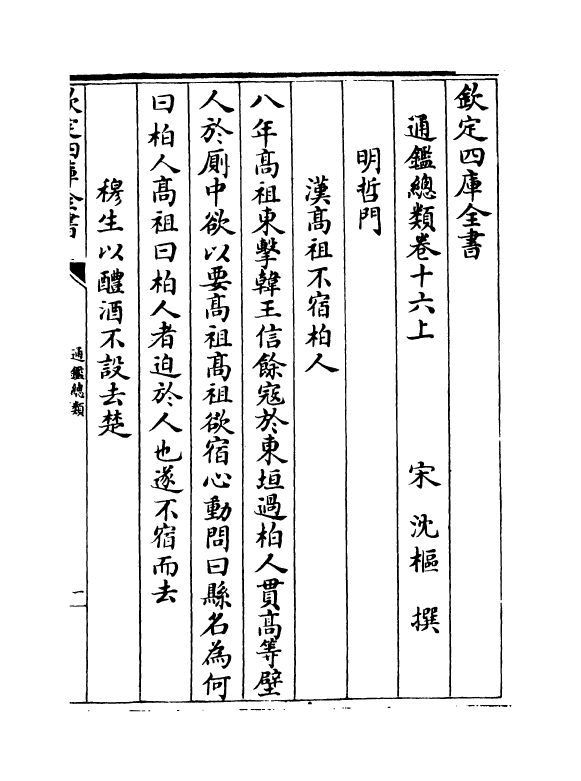 欽定四庫全書
通鑑總類卷十六上 宋 沈樞 撰
明哲門
漢高祖不宿柏人
八年高祖東擊韓王信餘寇於東垣過柏人貫高等壁
人於厠中欲以要高祖高祖欲宿心動問曰縣名為何
曰柏人高祖曰柏人者迫於人也遂不宿而去
穆生以醴酒不設去楚
欽定四庫全書
通鑑總類